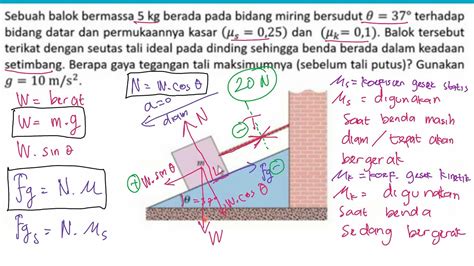 Sebuah balok bermassa 5 kg berada pada bidang miring bersudut θ = 37° terhadap
bidang datar dan permukaannya kasar (μs = 0,25) dan (μk = 0,1). Balok tersebut
terikat dengan seutas tali ideal pada dinding sehingga benda berada dalam keadaan
setimbang. Berapa gaya tegangan tali maksimumnya (sebelum tali putus)? Gunakan
g = 10 m/s².
W = berat
W = m.g
W. sin θ
Fg = N. μ
Fgs = N. μs
N = W. cos θ
a = 0
diam
20 N
N
m
+ W. sin θ
Fg
θ = 37°
W. cos θ
W
μs = koefisien gesek statis
μs = digunakan
saat benda masih
diam / tepat akan
bergerak
μk = koef. gesek kinetik
μk = digunakan
saat benda
sedang bergerak